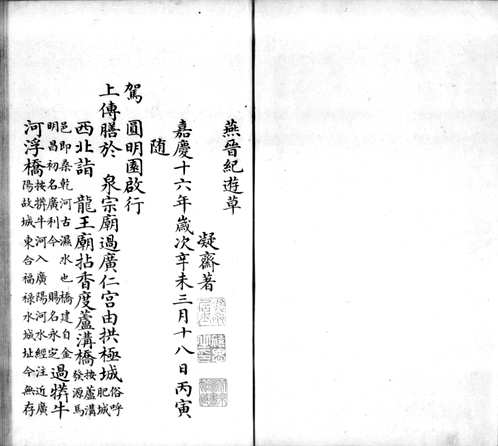 燕晉紀遊草
凝齋著
嘉慶十六年歲次辛未三月十八日丙寅
隨
駕 圓明園啟行
上傳膳於 泉宗廟過廣仁宮由拱極城
俗呼
肥城
西北詣 龍王廟拈香度蘆溝橋
按蘆溝
發源馬
邑即桑乾河古濕水也橋建自金
明昌初名廣利今 賜名永定
過牛
河浮橋
按牛河入廣陽河水經注近廣
陽故城東合福祿水城址今無存